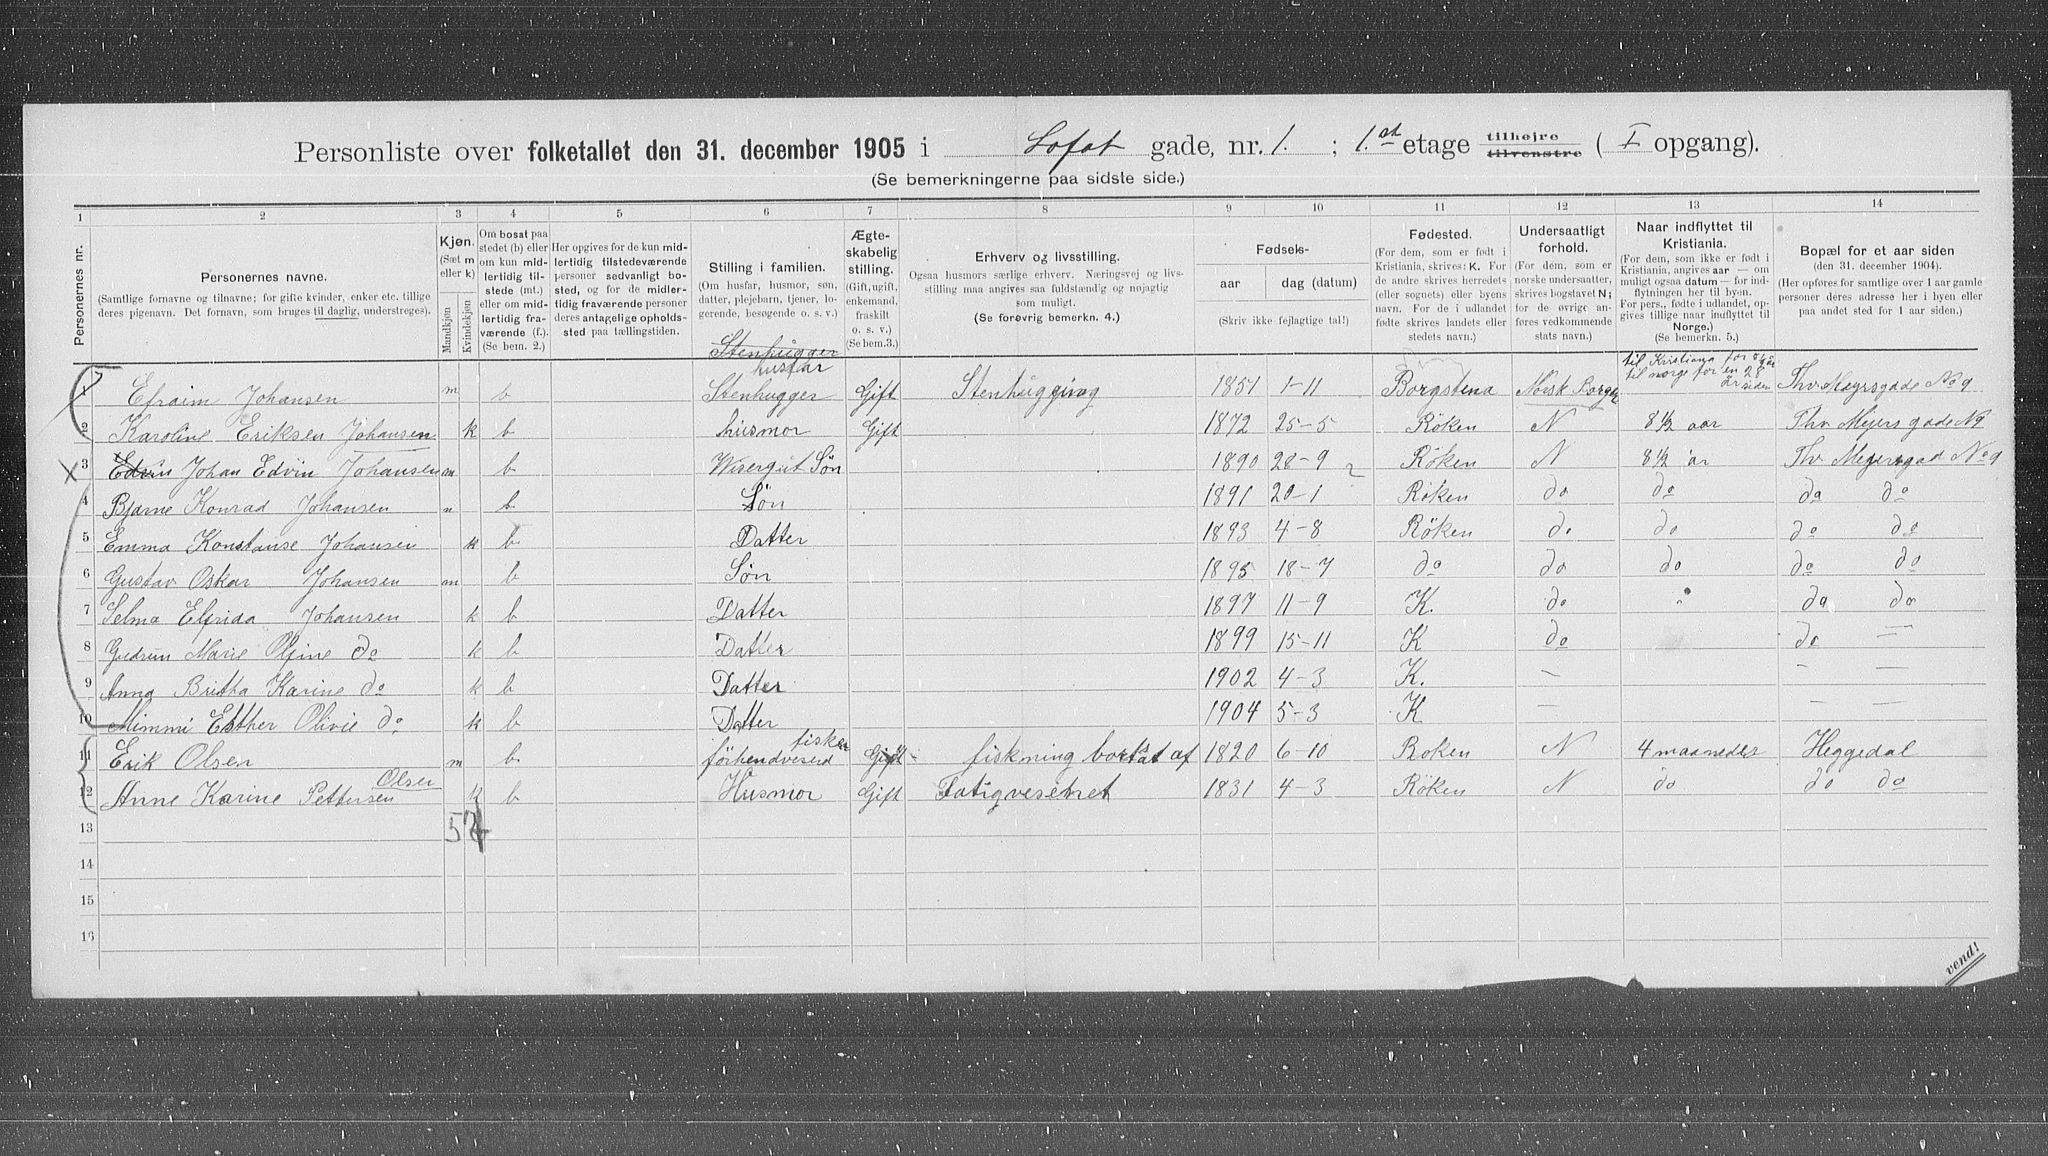 Personliste over folketallet den 31. december 1905 i Lofot gade, nr. 1. ; 1.st etage tilhøjre tilvenstre ( I opgang).
(Se bemerkningerne paa sidste side.)
1 2 3 4 5 6 7 8 9 10 11 12 13 14
Personernes nr.
Personernes navne.
(Samtlige fornavne og tilnavne; for gifte kvinder, enker etc. tillige deres pigenavn. Det fornavn, som bruges til daglig, understreges).
Kjøn.
(Sæt m eller k)
Mandkjøn
Kvindekjøn
Om bosat paa stedet (b) eller om kun midlertidig tilstede (mt.) eller om midlertidig fraværende (f.). (Se bem. 2.)
Her opgives for de kun midlertidig tilstedeværende personer sedvanligt bosted, og for de midlertidig fraværende personer deres antagelige opholdssted paa tællingstiden.
Stilling i familien.
(Om husfar, husmor, søn, datter, plejebarn, tjener, logerende, besøgende o. s. v.)
Ægteskabelig stilling.
(Gift, ugift, enkemand, fraskilt o. s. v.)
(Se bem. 3.)
Erhverv og livsstilling.
Ogsaa husmors særlige erhverv. Næringsvej og livsstilling maa angives saa fuldstændig og nøjagtig som muligt.
(Se forøvrig bemerkn. 4.)
Fødsels-
aar dag (datum)
(Skriv ikke fejlagtige tal!)
Fødested.
(For dem, som er født i Kristiania, skrives: K. For de andre skrives herredets (eller sognets) eller byens navn. For de i udlandet fødte skrives landets eller stedets navn.)
Undersaatligt forhold.
(For dem, som er norske undersaatter, skrives bogstavet N; for de øvrige anføres vedkommende stats navn.)
Naar indflyttet til Kristiania.
(For dem, som ikke er født i Kristiania, angives aar — om muligt ogsaa datum — for indflytningen her til byen. For pers., fødte i udlandet, opgives tillige naar indflyttet til Norge.)
(Se bemerkn. 5.)
Bopæl for et aar siden
(den 31. december 1904).
(Her opføres for samtlige over 1 aar gamle personer deres adresse her i byen eller paa andet sted for 1 aar siden.)
Stenhugger
husfar til Kristiana for 8½ år
til norge for en 28 år siden
1 Efraim Johansen m b Stenhugger Gift Stenhugging 1851 1-11 Borgstena Norsk Borger Thv Meyrsgade No 9
2 Karoline Eriksen Johansen k b husmor Gift 1872 25-5 Røken N 8½ aar Thv Mejers gade N9
3 Edvin Johan Edvin Johansen m b Wisergut Søn 1890 28-9 Røken N 8½ år Thv Mejersgad No 9
4 Bjarne Konrad Johansen b Søn 1891 20-1 Røken do do do do
5 Emma Konstanse Johansen k b Datter 1893 4-8 Røken do do do do
6 Gustav Oskar Johansen m b Søn 1895 18-7 do do do do do
7 Selma Elfrida Johansen k b Datter 1897 11-9 K. do do do
8 Gudrun Marie Olfine do k b Datter 1899 15-11 K do do —
9 Anna Britha Karine do k b Datter 1902 4-3 K. — — —
10 Mimmi Esther Olivie do k b Datter 1904 5-3 K — — —
11 Erik Olsen m b. førhendverend fisker Gift fiskning bortsat af 1820 6-10 Roken N 4 maaneder Heggedal
12 Anne Karine Pettersen Olsen k b Husmor Gift Fatigvesenet 1831 4-3 Røken N do do do
13 5 7
14
15
16
vend!